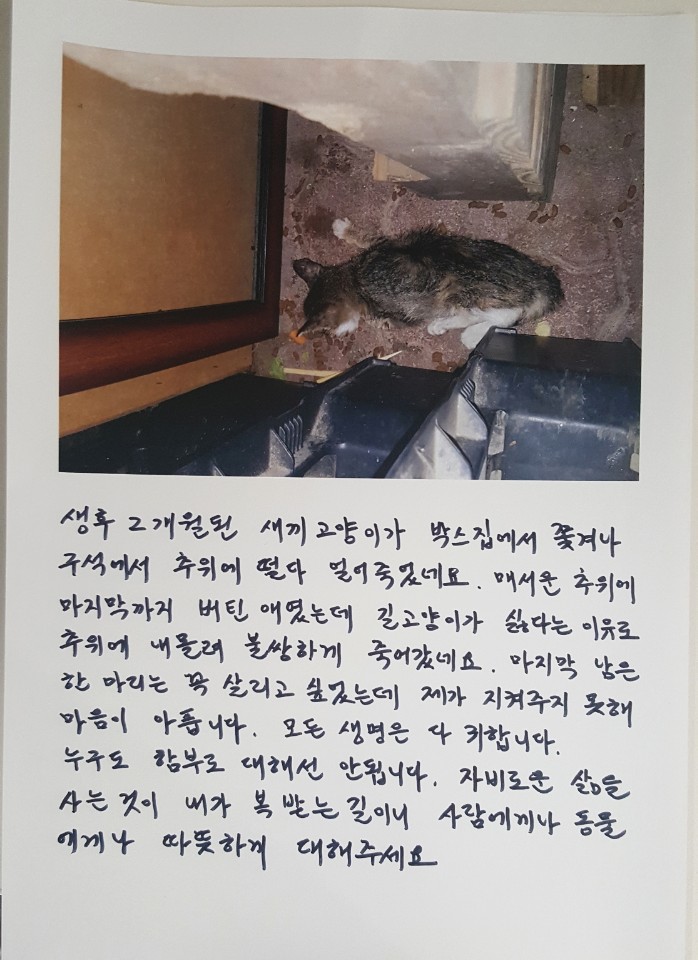 생후 2개월된 새끼고양이가 박스집에서 쫓겨나
구석에서 추위에 떨다 얼어죽었네요. 매서운 추위에
마지막까지 버틴 애였는데 길고양이가 싫다는 이유로
추위에 내몰려 불쌍하게 죽어갔네요. 마지막 남은
한 마리는 꼭 살리고 싶었는데 제가 지켜주지 못해
마음이 아픕니다. 모든 생명은 다 귀합니다.
누구도 함부로 대해선 안됩니다. 자비로운 삶을
사는 것이 내가 복 받는 길이니 사람에게나 동물
에게나 따뜻하게 대해주세요